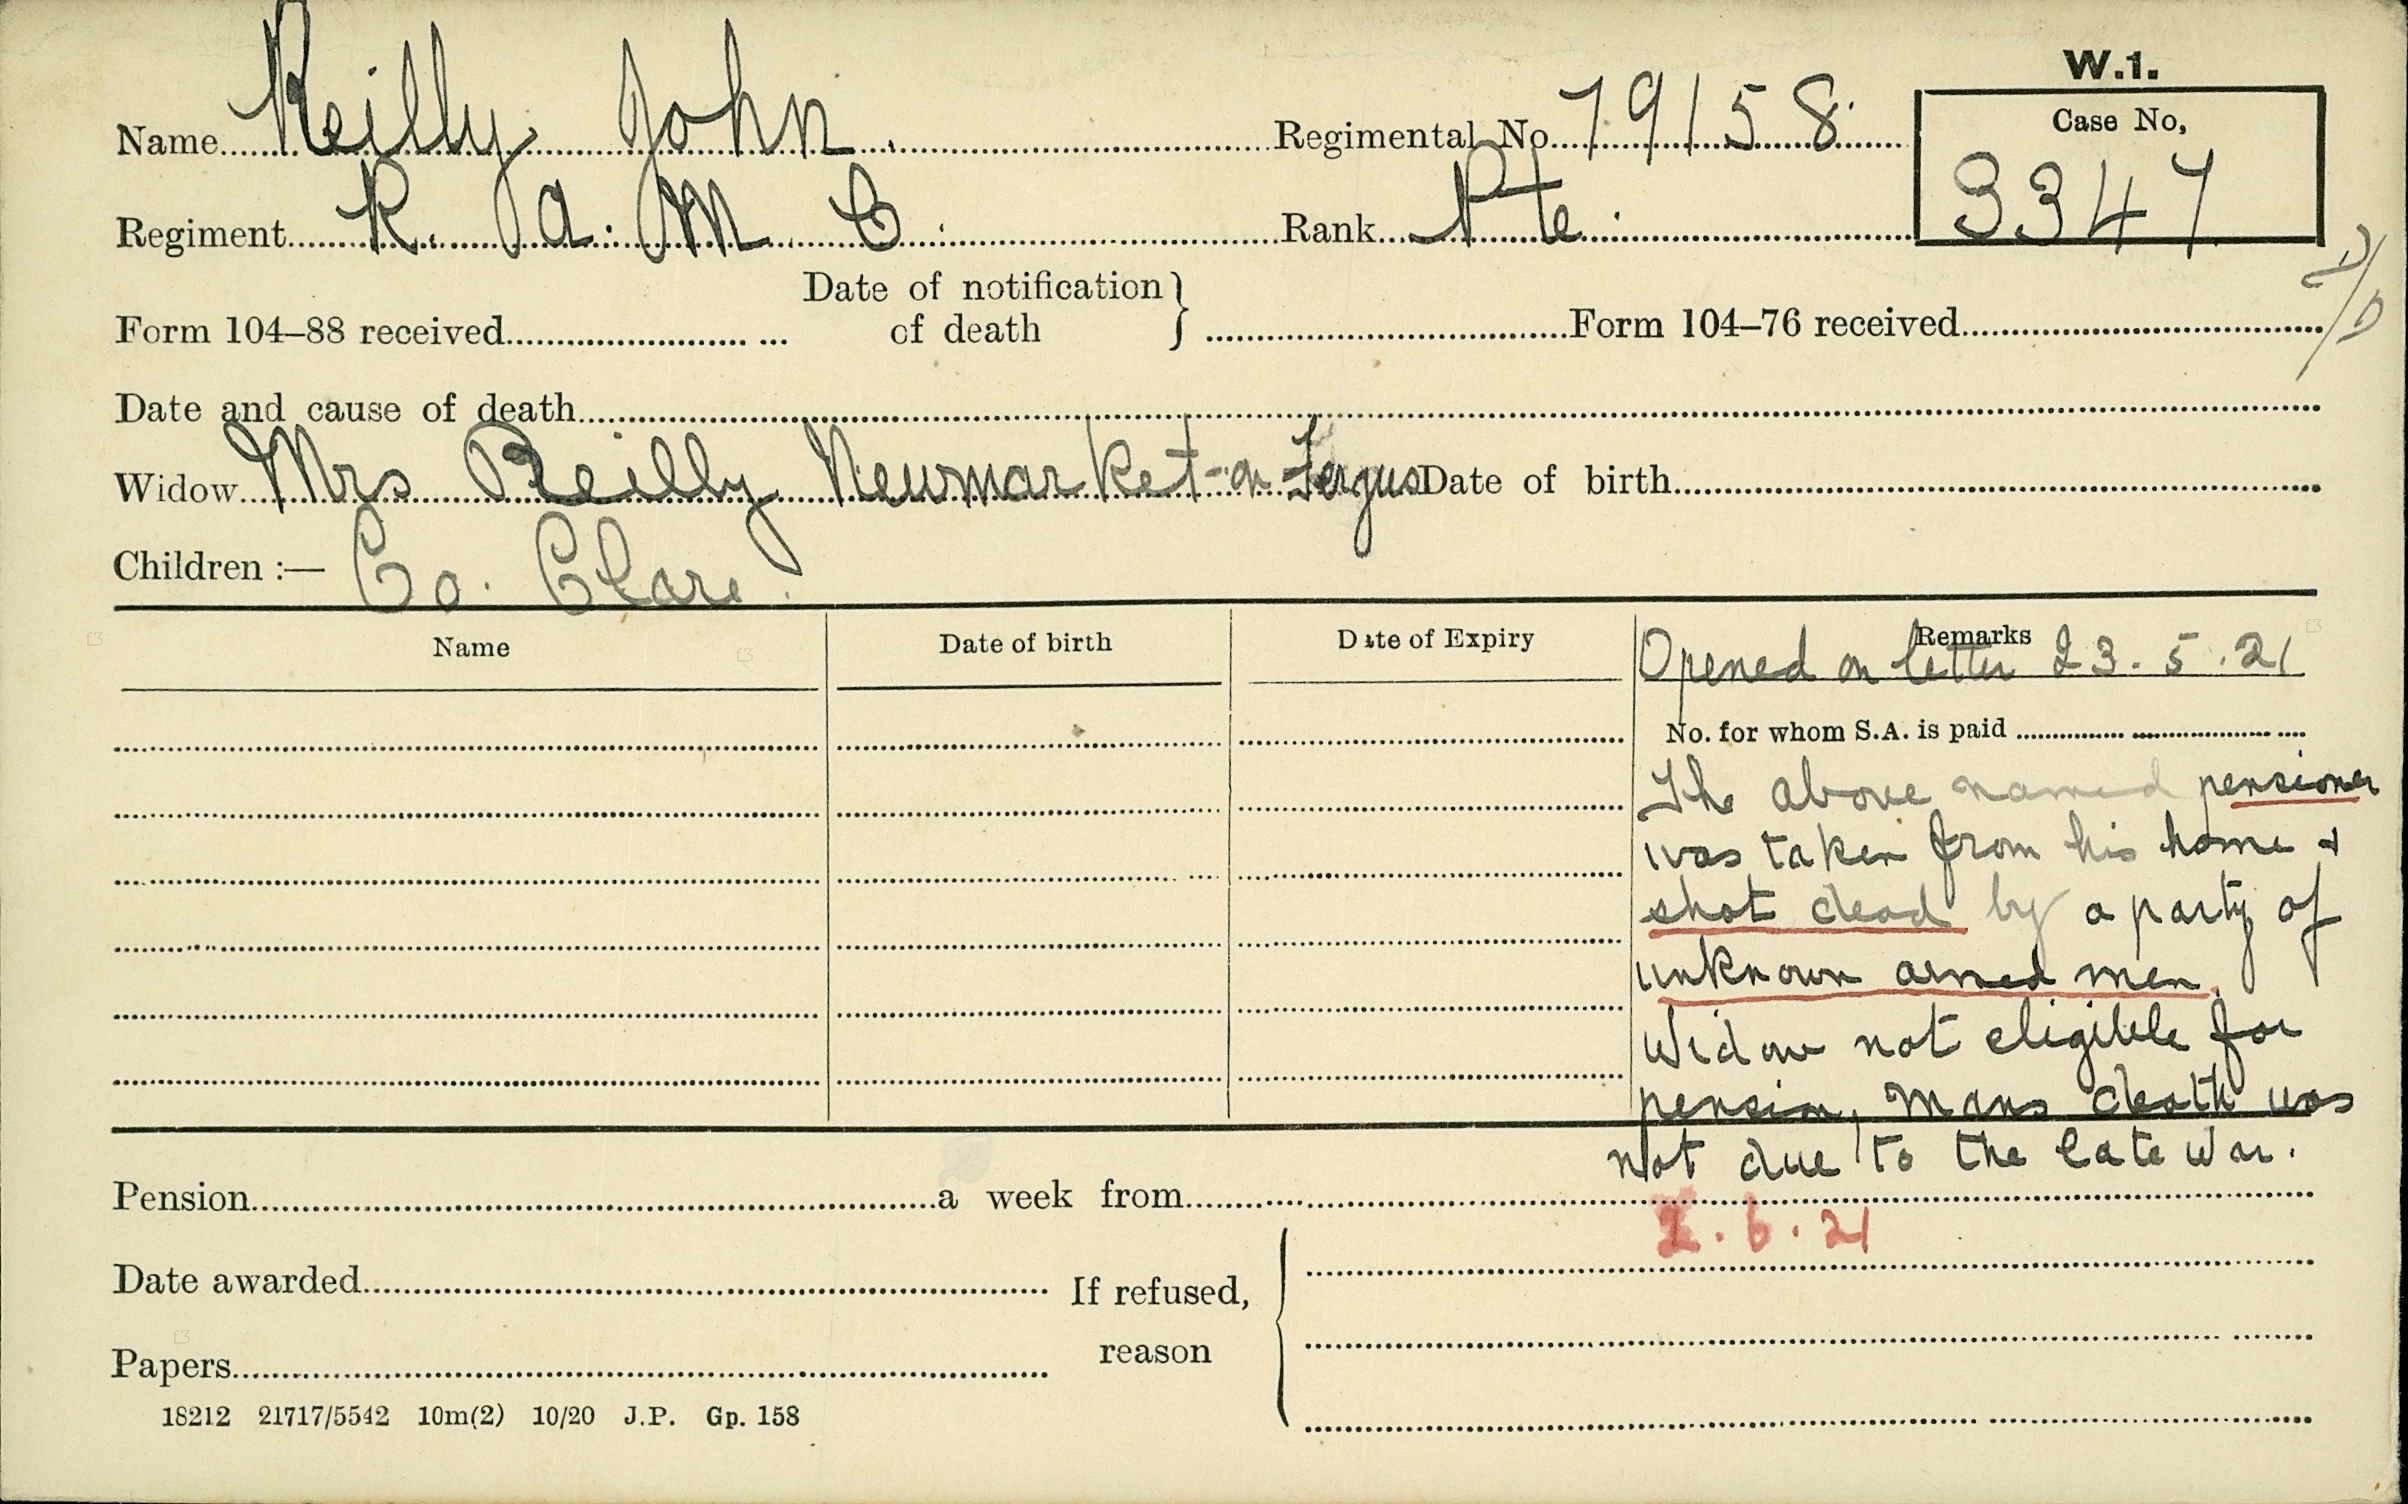 W.1.
Name Reilly John. Regimental No. 79158. Case No,
3347
Regiment R. A. M. C. Rank Pte.
Form 104–88 received Date of notification of death } Form 104–76 received
Date and cause of death
Widow Mrs Reilly Newmarket-on-Fergus Date of birth
Children :— Co. Clare.
Name Date of birth Date of Expiry Remarks
Opened on letter 23.5.21
No. for whom S.A. is paid
The above named pensioner
was taken from his home +
shot dead by a party of
unknown armed men.
Widow not eligible for
pension, mans death was
not due to the late war.
Pension a week from
2.6.21
Date awarded If refused,
reason
Papers
18212 21717/5542 10m(2) 10/20 J.P. Gp. 158